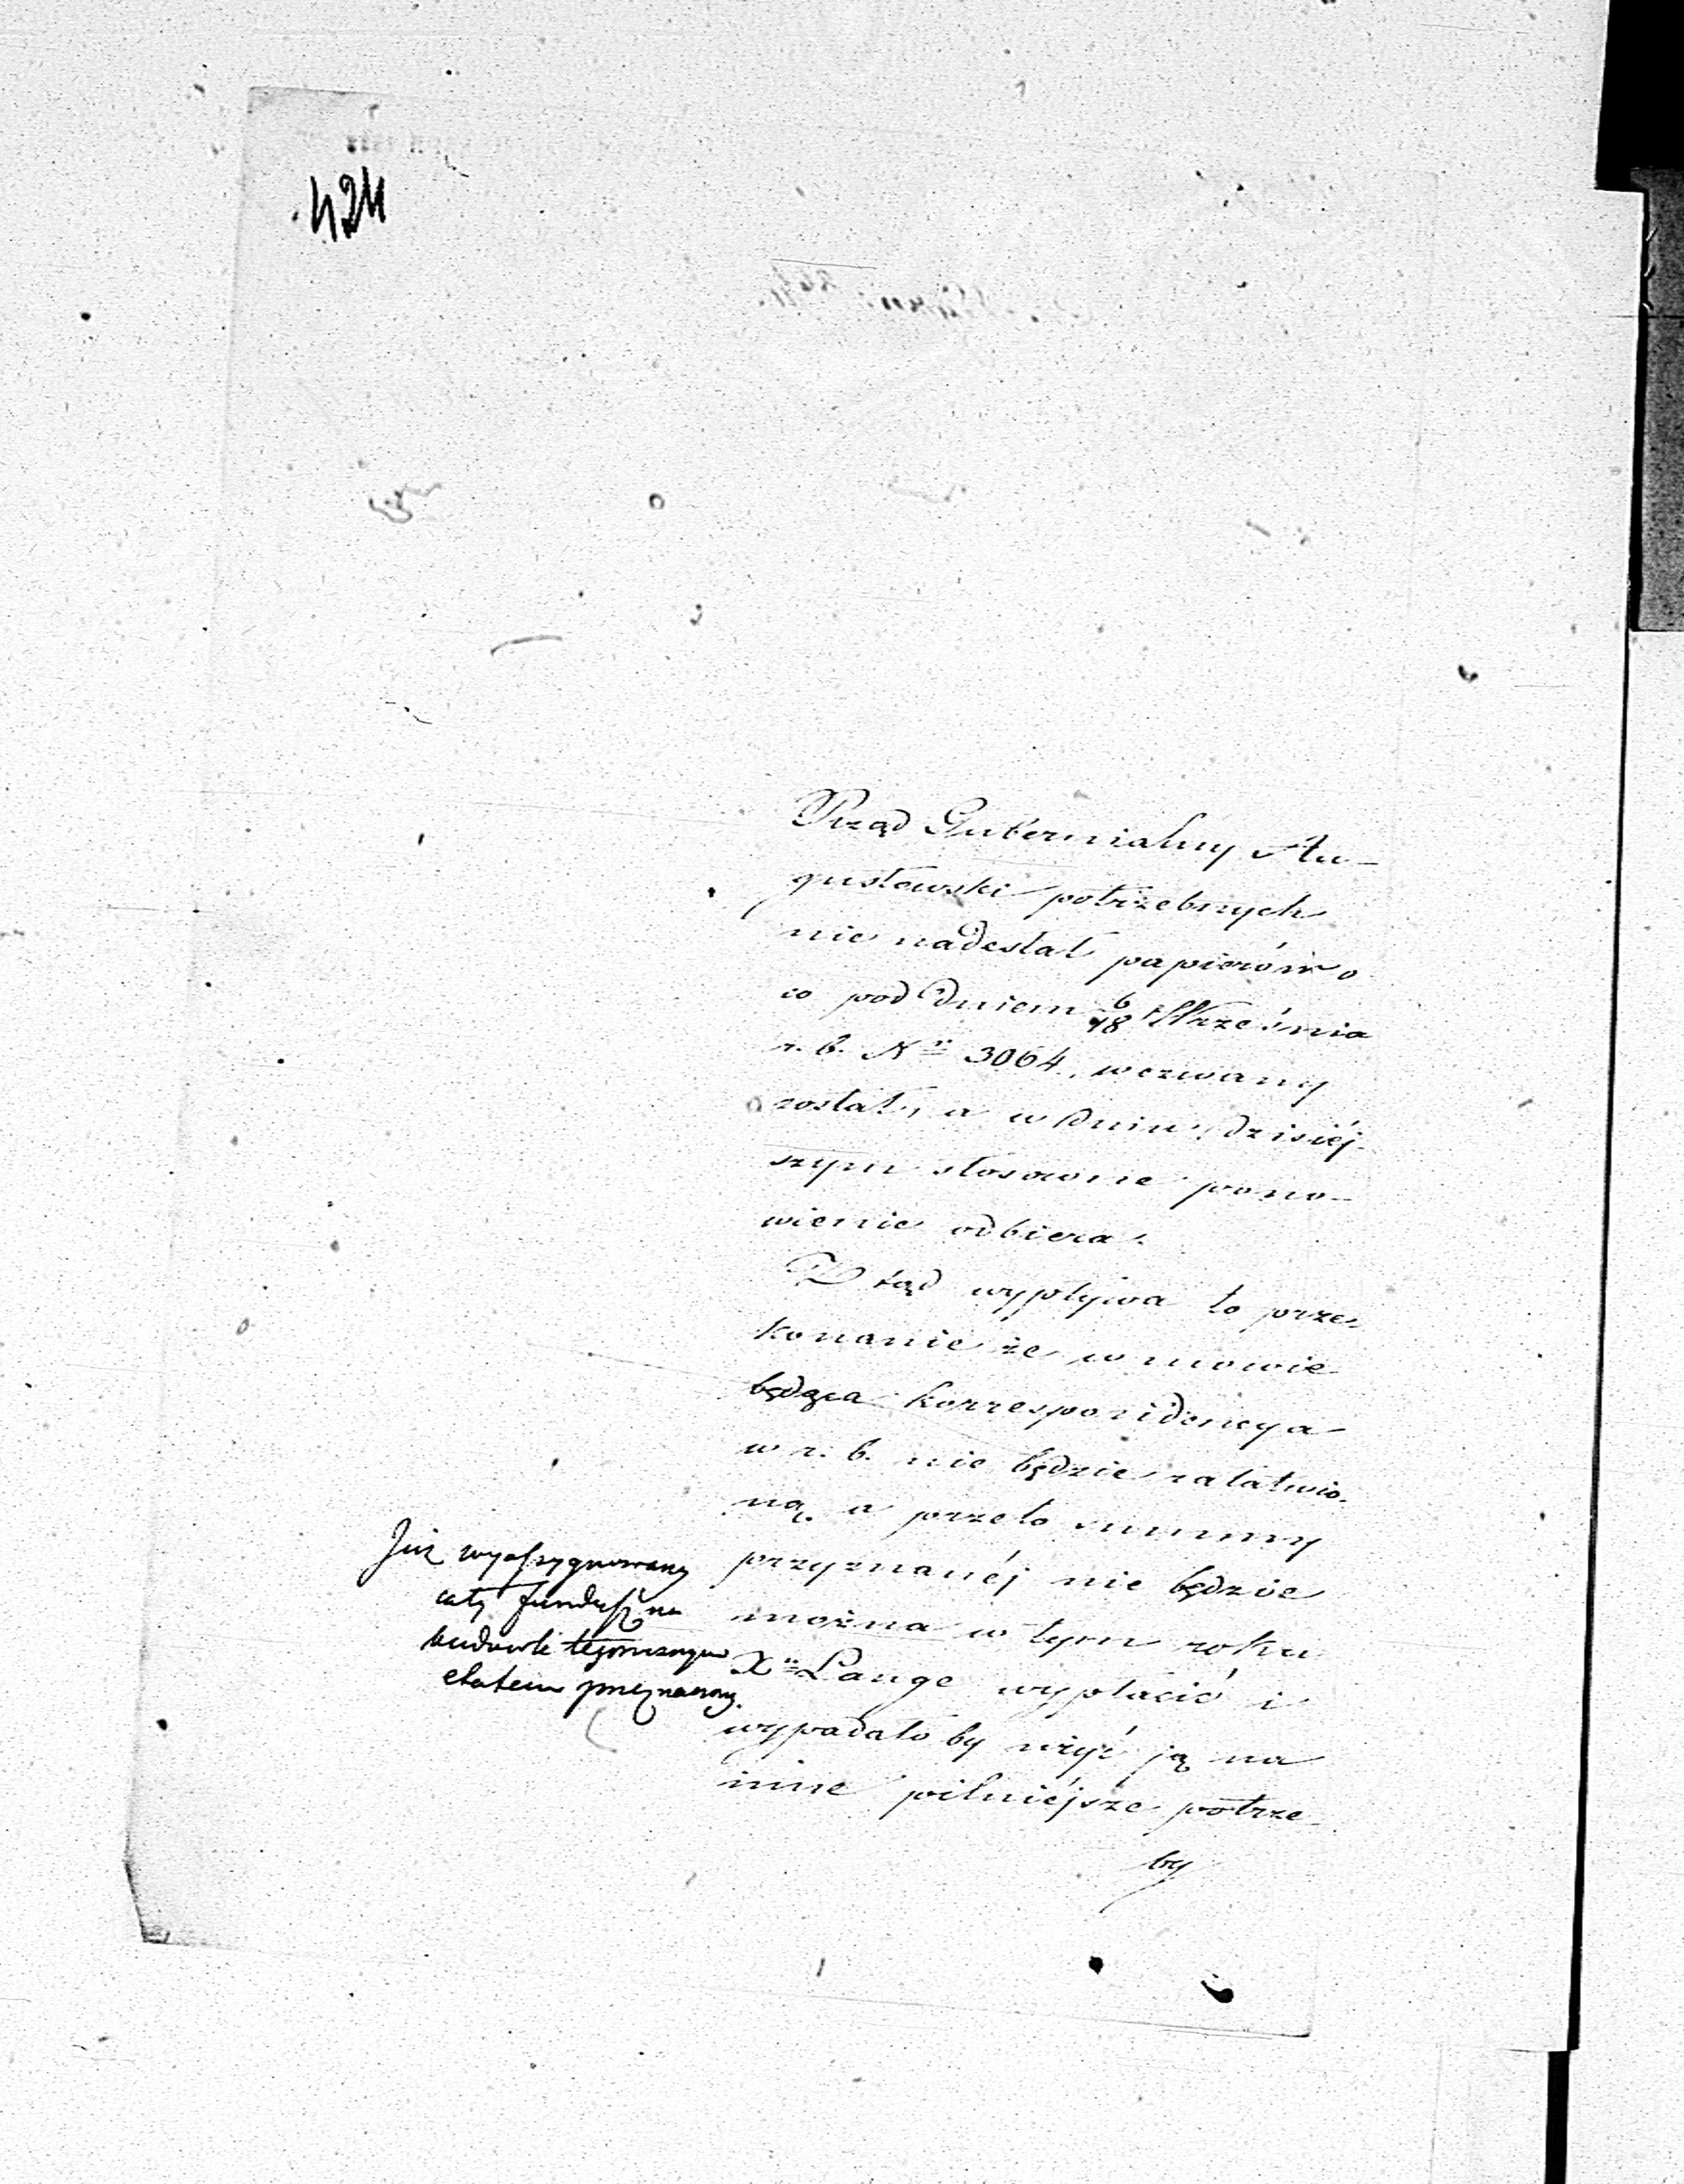 424
Rząd Gubernialny Au-
gustowski potrzebnych
nie nadesłał papierów o
co pod dniem 6/18 Września
r. b. No 3064, wezwany
został, a w dniu dzisiéj-
szym stosowne pono-
wienie odbiera.
Ztąd wypływa to prze-
konanie że w mowie
będąca korrespondencya
w r. b. nie będzie załatwio-
ną, a przeto summy
przyznanéj nie będzie
można w tym roku
Xu Lange wypłacić i
wypadało by użyć ją na
inne pilniéjsze potrze-
by
Już wyassygnowany
cały fundusz na
budowle tegorocznym
etatem przyznany.